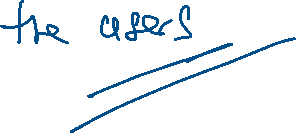 the users